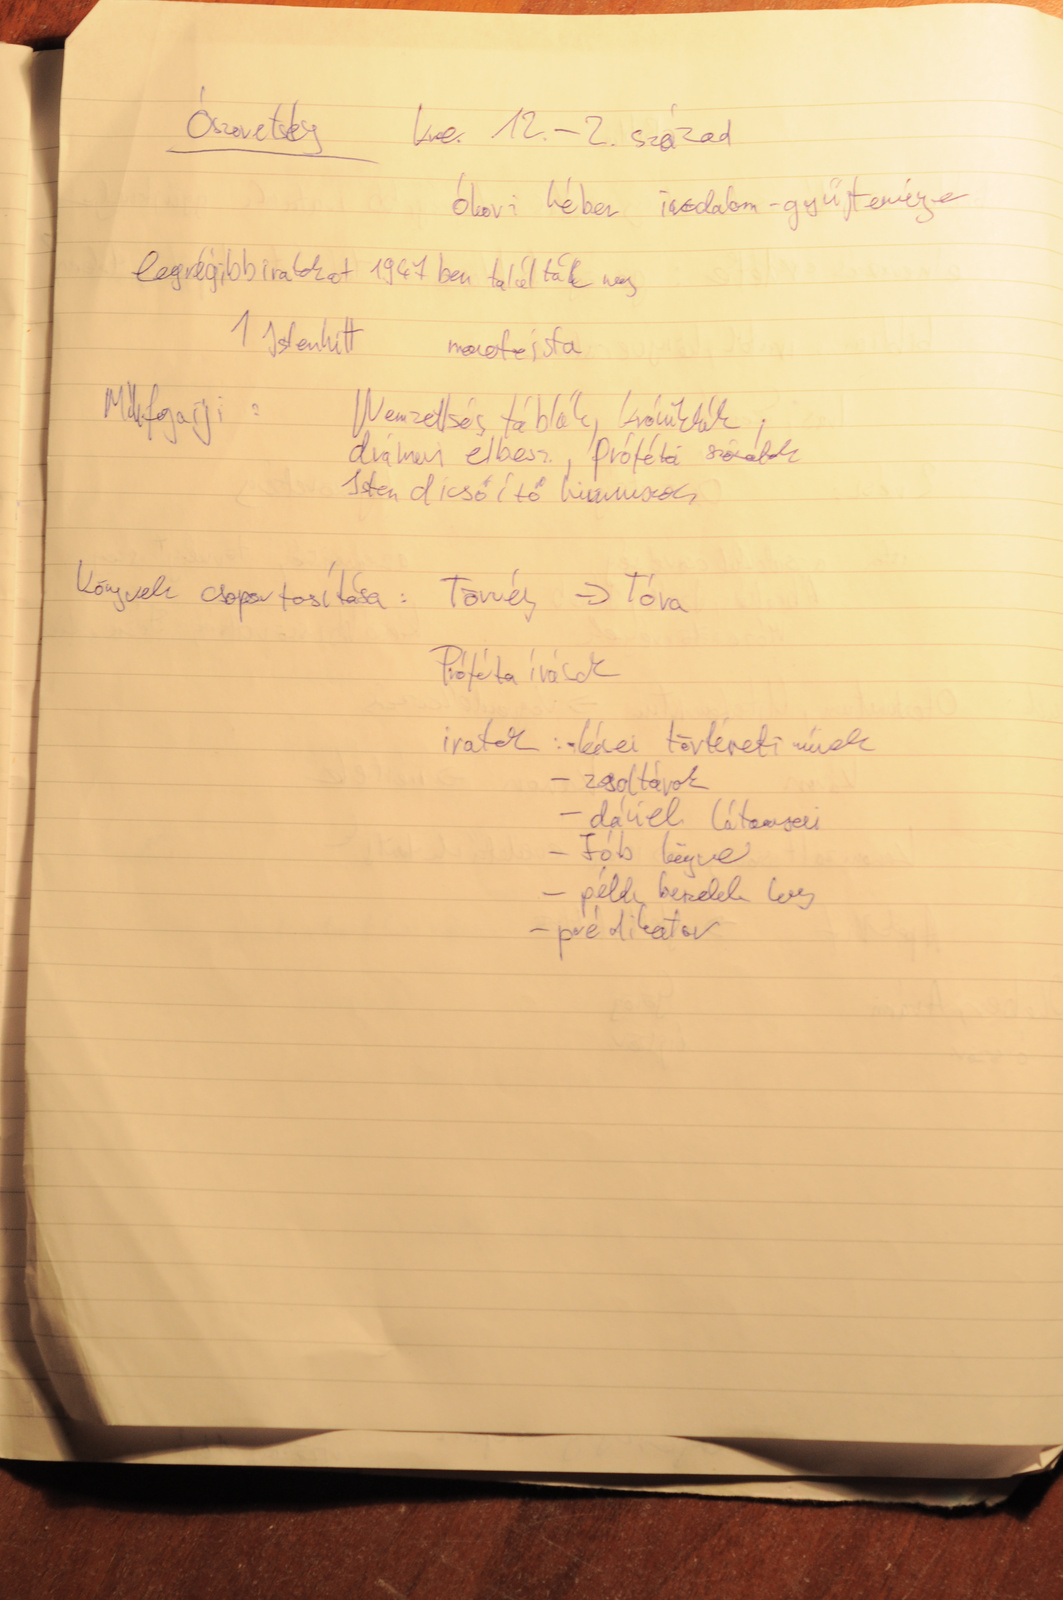 Ószövetség kr.e. 12.-2. század
ókori héber irodalom-gyűjteménye
legrégibb iratokat 1947 ben találták meg
1 Istenhitt monoteista
Műfajai : Nemzettség táblák, krónikák,
drámai elbesz, Próféta szózatok
Isten dicsőítő himnuszok
Könyvek csoportosítása : Törvény => Tóra
Próféta írások
iratok : - kései történeti művek
- zsoltárok
- dániel látomásai
- Jób könyve
- péld. beszédek köny
- prédikátor